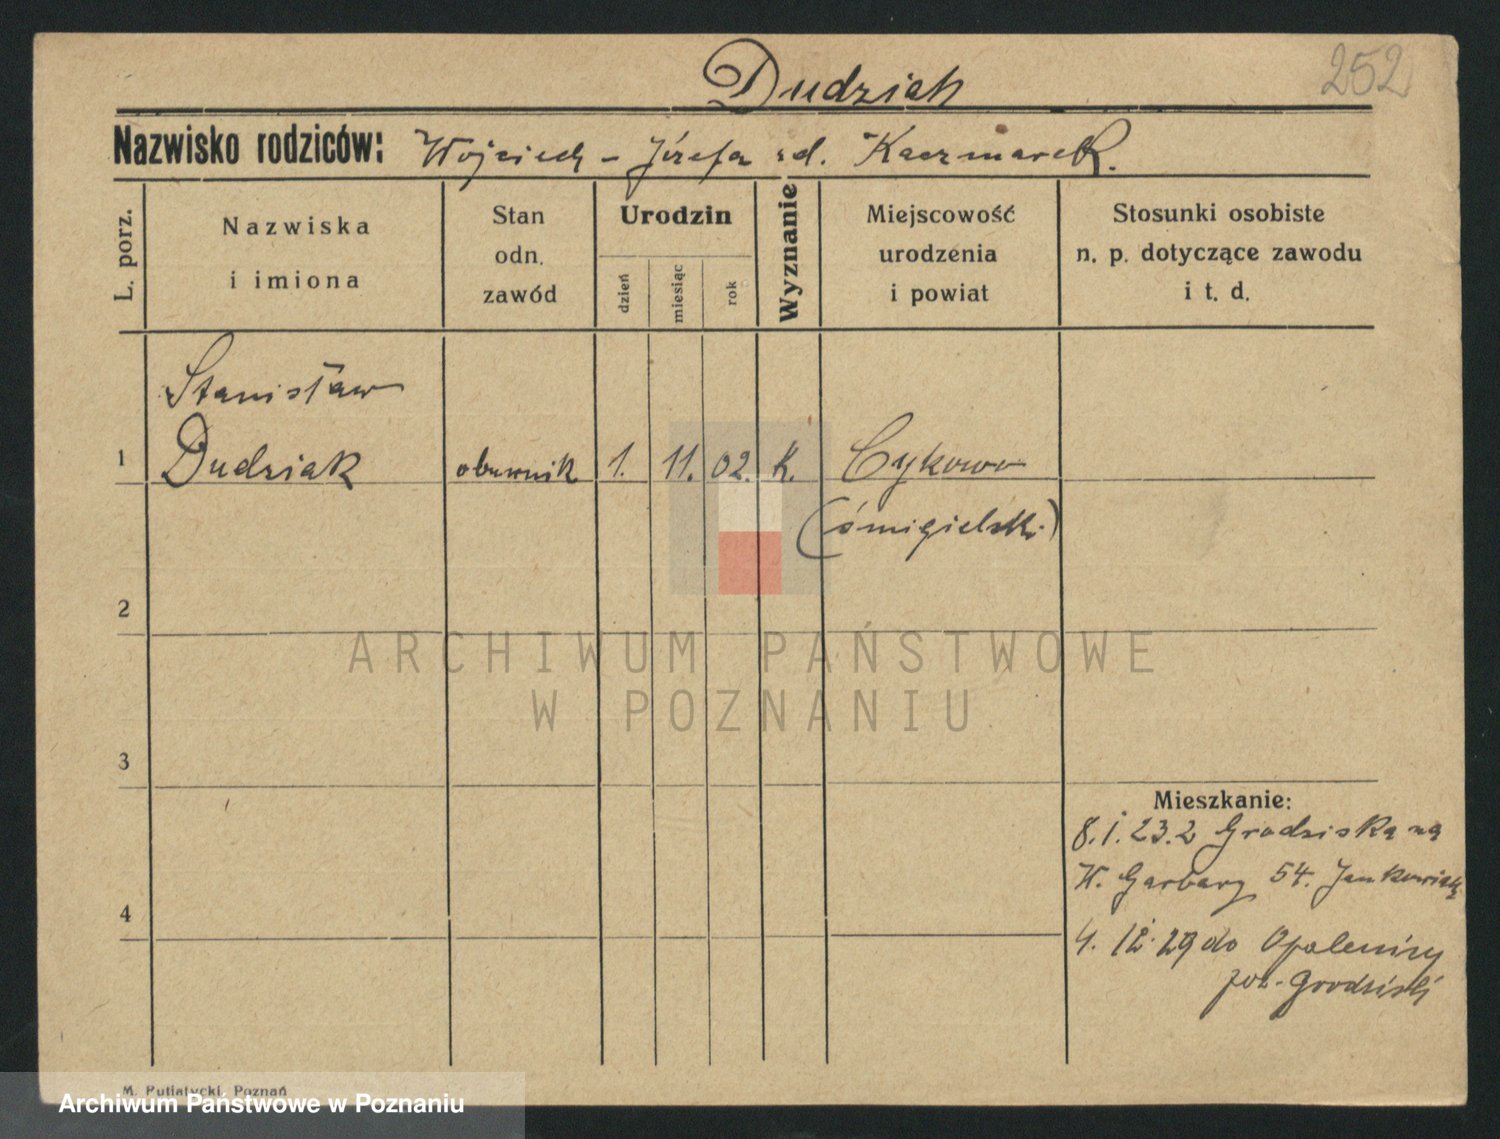 Dudziak
252
Nazwisko rodziców: Wojciech – Józefa zd. Kaczmarek.
L. porz.
Nazwiska
i imiona
Stan
odn.
zawód
Urodzin
dzień
miesiąc
rok
Wyznanie
Miejscowość
urodzenia
i powiat
Stosunki osobiste
n. p. dotyczące zawodu
i t. d.
Stanisław
1 Dudziak obuwnik 1. 11. 02. K. Cykowo
(śmigielski)
2
ARCHIWUM PAŃSTWOWE
W POZNANIU
3
Mieszkanie:
8. I. 23. z Grodziska na
W. Garbary 54.
4
4. 12. 29 do Opalenicy
pow. Grodziski
M. Putiatycki, Poznań
Archiwum Państwowe w Poznaniu